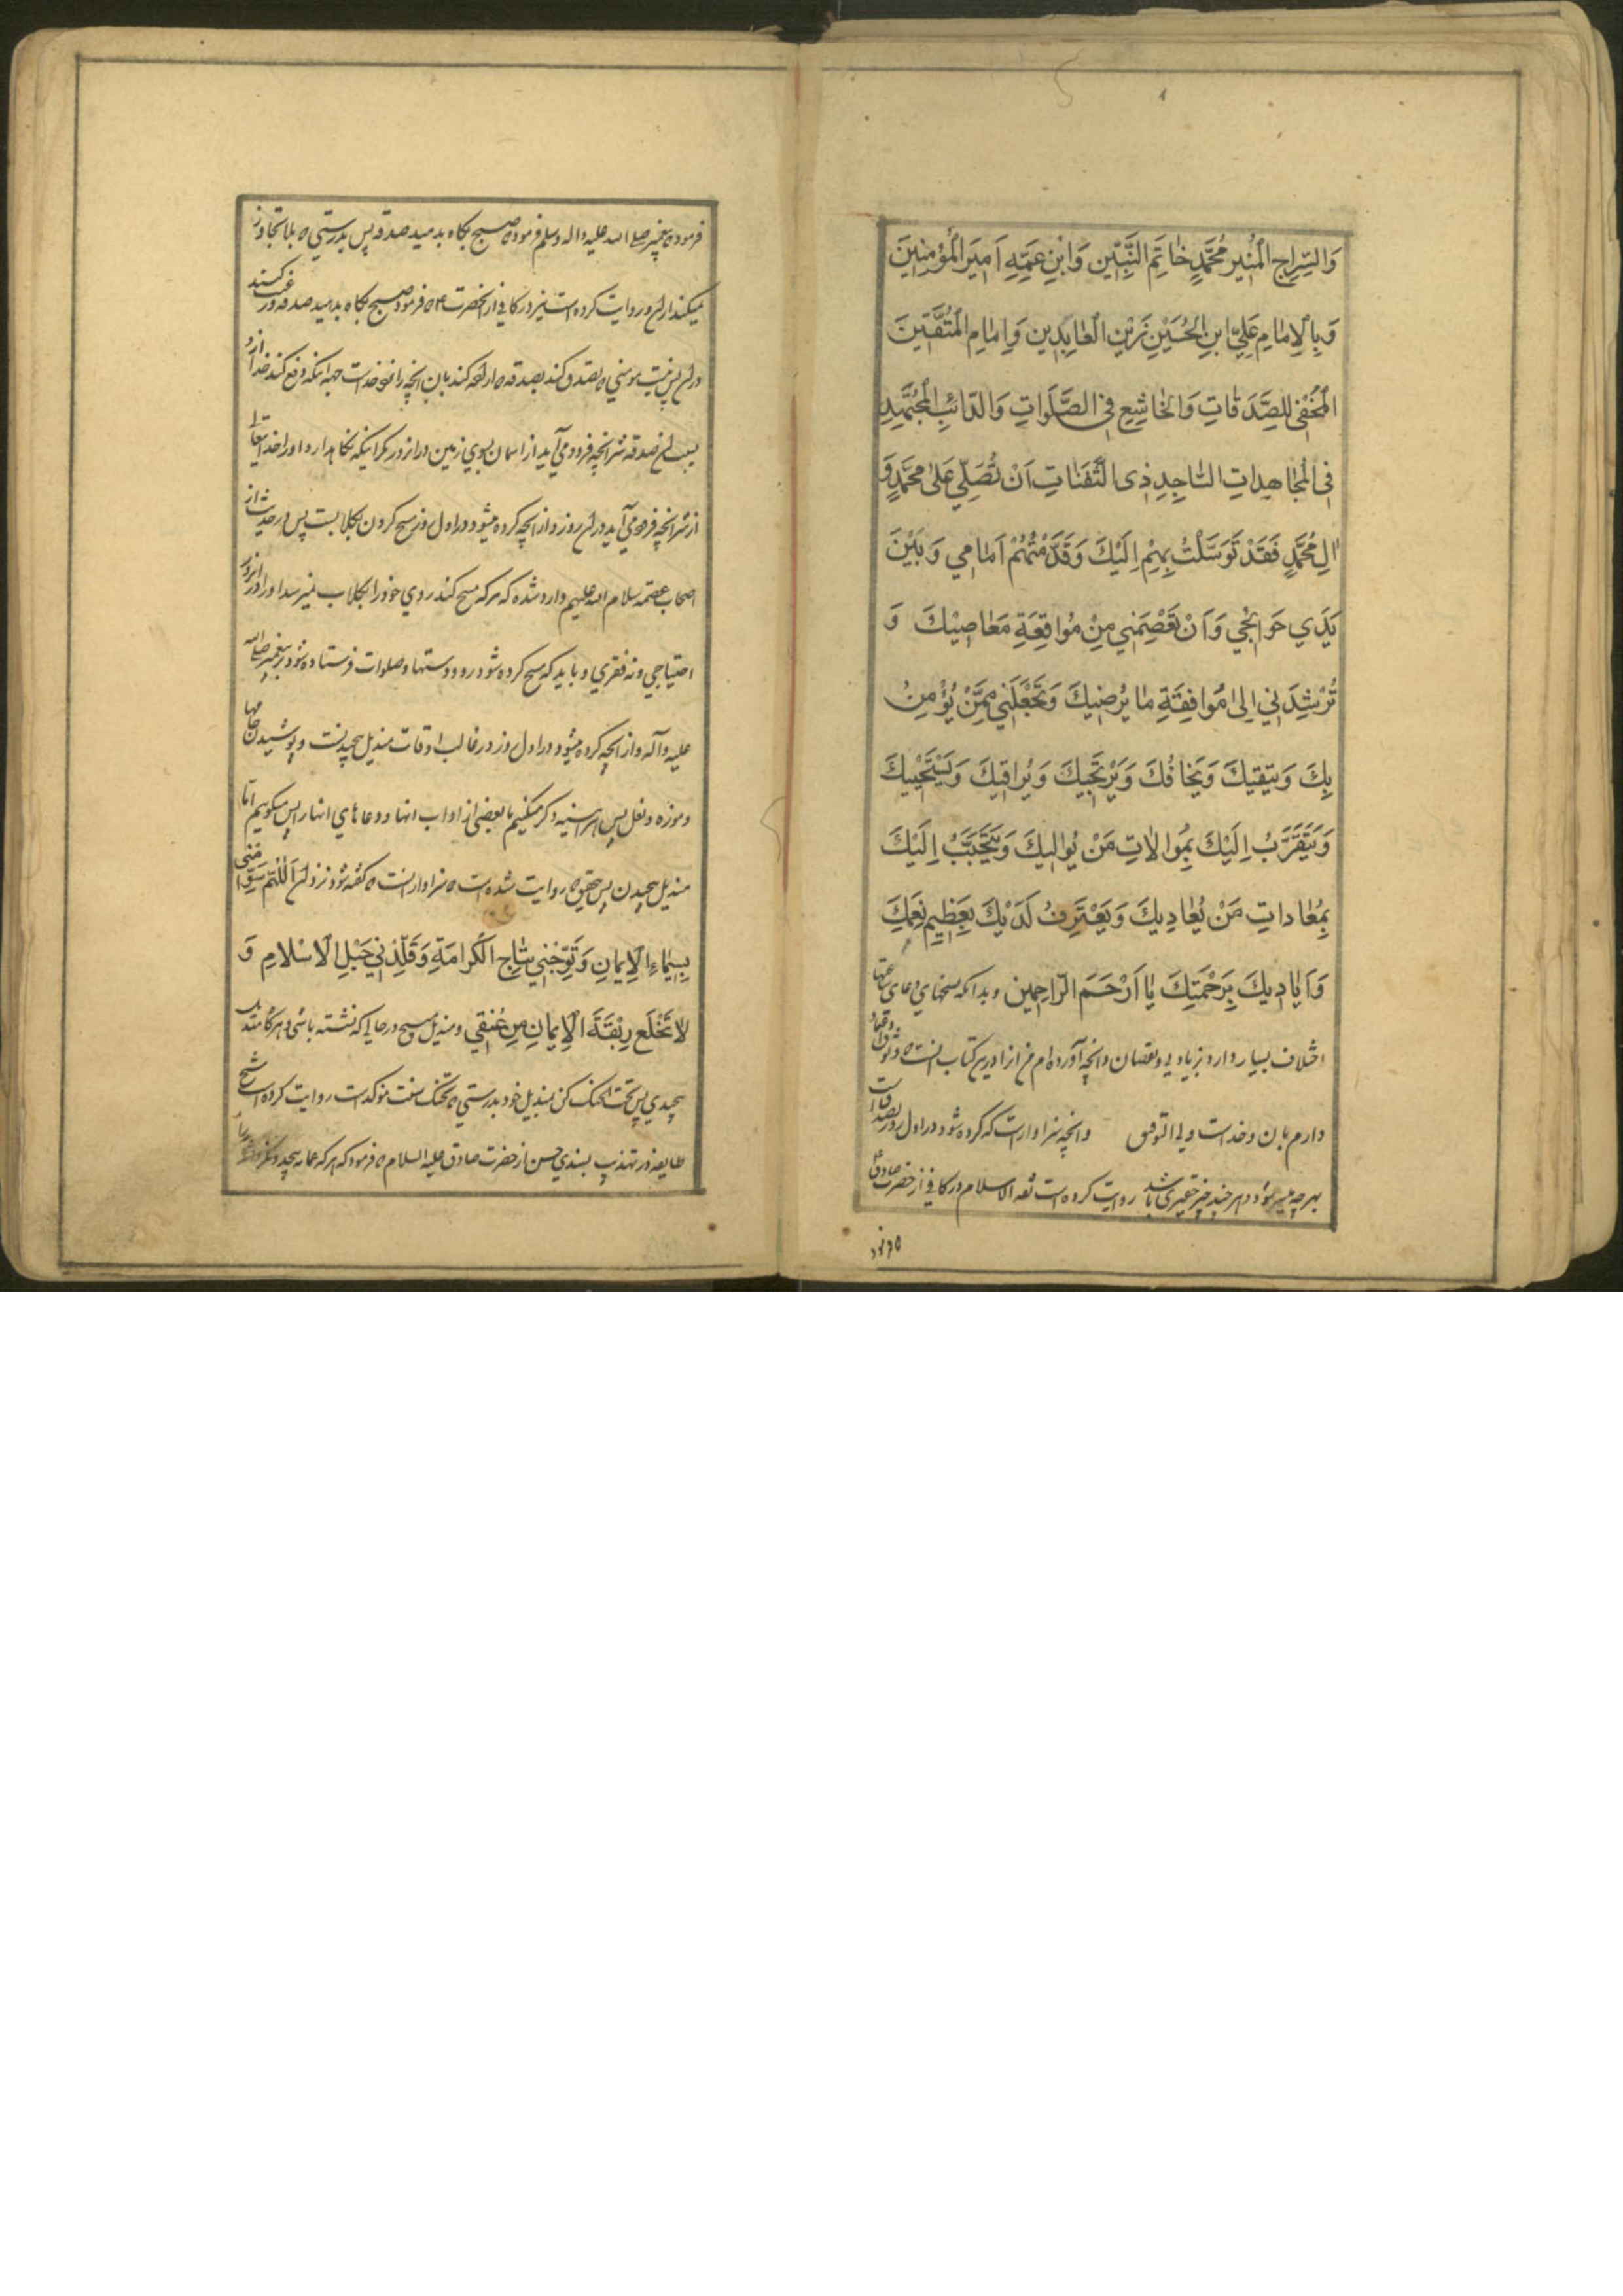 وَالسِّرٰاجِ الْمُنیرِ مُحَمَّدٍ خٰاتَمِ النَّبِیّینَ وَابْنِ عَمِّهِ اَمیرَ الْمُؤْمِنینَ
وَبِالْاِمٰامِ عَلِیِّ ابْنِ الْحُسَیْنِ زَیْنِ الْعٰابِدینِ وَاِمٰامِ الْمُتَّقینَ
الْمُخْفی لِلصَّدَقٰاتِ وَالْخٰاشِعِ فِی الصَّلَوٰاتِ وَالدّٰائِبِ الْمُجْتَهِدِ
فِی الْمُجٰاهِدٰاتِ السّٰاجِدِ ذِی الثَّفَنٰاتِ اَنْ تُصَلِّیَ عَلیٰ مُحَمَّدٍ وَ
اٰلِ مُحَمَّدٍ فَقَدْ تَوَسَّلْتُ بِهِمْ اِلَیْكَ وَقَدَّمْتُهُمْ اَمٰامی وَبَیْنَ
یَدَی حَوٰائِجی وَاَنْ تَعْصِمَنی مِنْ مُوٰاقِعَةِ مَعٰاصیْكَ وَ
تُرْشِدَنی اِلیٰ مُوٰافِقَةِ مٰا یُرْضیكَ وَتَجْعَلَنی مِمَّنْ یُؤْمِنُ
بِكَ وَیَتَّقیكَ وَیَخٰافُكَ وَیَرْتَجیكَ وَیُراقِیكَ وَیَسْتَحْییكَ
وَیَتَقَرَّبُ اِلَیْكَ بِمُوٰالٰاتِ مَنْ یُوٰالیكَ وَیَتَحَبَّبُ اِلَیْكَ
بِمُعٰادٰاتِ مَنْ یُعٰادیكَ وَیَعْتَرِفُ لَدَیْكَ بِعَظیمِ نِعَمِكَ
وَاَیٰادیكَ بِرَحْمَتِكَ یٰا اَرْحَمَ الرّٰاحِمینَ وبدانکه نسخهای دعای ساعتها
اختلاف بسیار دارد بزیادتی ونقصان وانچه آورده‌ام من انرا درین کتاب انست که وثوق
دارم بان وخداست ولی التوفیق وانچه سزاوارست که کرده شود در اول روز تصدقست
بهرچه میسر شود وهرچند چیز حقیری باشد روایت کرده است ثقه الاسلام در کافی از حضرت صادق
که فرمود
فرموده پیغمبر صلی الله علیه واله وسلم فرمود که صبح بکاه بدهید صدقه پس بدرستی که بلا تجاوز
نمیکند ازان وروایت کرده است نیز در کافی از انحضرت که فرمود صبح بکاه بدهید صدقه ورغبت کنید
دران پس نیست مومنی که تصدق کند بصدقه که اراده کند بان انچه را نزد خداست جهة اینکه دفع کند خدا ازو
بسبب ان صدقه شر انچه فرود می آید از اسمان بسوی زمین دران روز مکر اینکه نکاهدارد او را خدایتعالی
از شر انچه فرود می آید دران روز واز انچه کرده میشود در اول روز مسح کردن بکلابست پس در حدیث از
اصحاب عصمة سلام الله علیهم وارد شده که هرکه مسح کند روی خود را بکلاب نمیرسد او را دران روز
احتیاجی ونه فقری وباید که مسح کرده شود رو ودستها وصلوات فرستاده شود بر پیغمبر صلی الله
علیه وآله واز انچه کرده میشود در اول روز در غالب اوقات مندیل پیچیدنست وپوشیدن جامها
وموزه ونعل پس هراینه ذکر میکنیم ما بعضی از اداب انها ودعاهای انها را پس میکوییم اما
مندیل پیچیدن پس بتحقیق که روایت شده است که سزاوار انست که کفته شود نزد ان اَللّٰهُمَّ سَوِّمْنی
بِسیمٰاءِ الْاِیمٰانِ وَتَوِّجْنی بِتٰاجِ الْکَرٰامَةِ وَقَلِّدْنی حَبْلَ الْاِسْلامِ وَ
لاٰ تَخْلَعْ رِبْقَةَ الْاِیمٰانِ مِنْ عُنُقی ومندیل مپیچ درحالی که نشسته باشی وهرکاه مندیل
پیچیدی پس تحت الحنک کن بمندیل خود بدرستی که تحنک سنت مؤکدست روایت کرده است شیخ
طایفه در تهذیب بسندی حسن از حضرت صادق علیه السلام که فرمود که هرکه عمامه پیچد